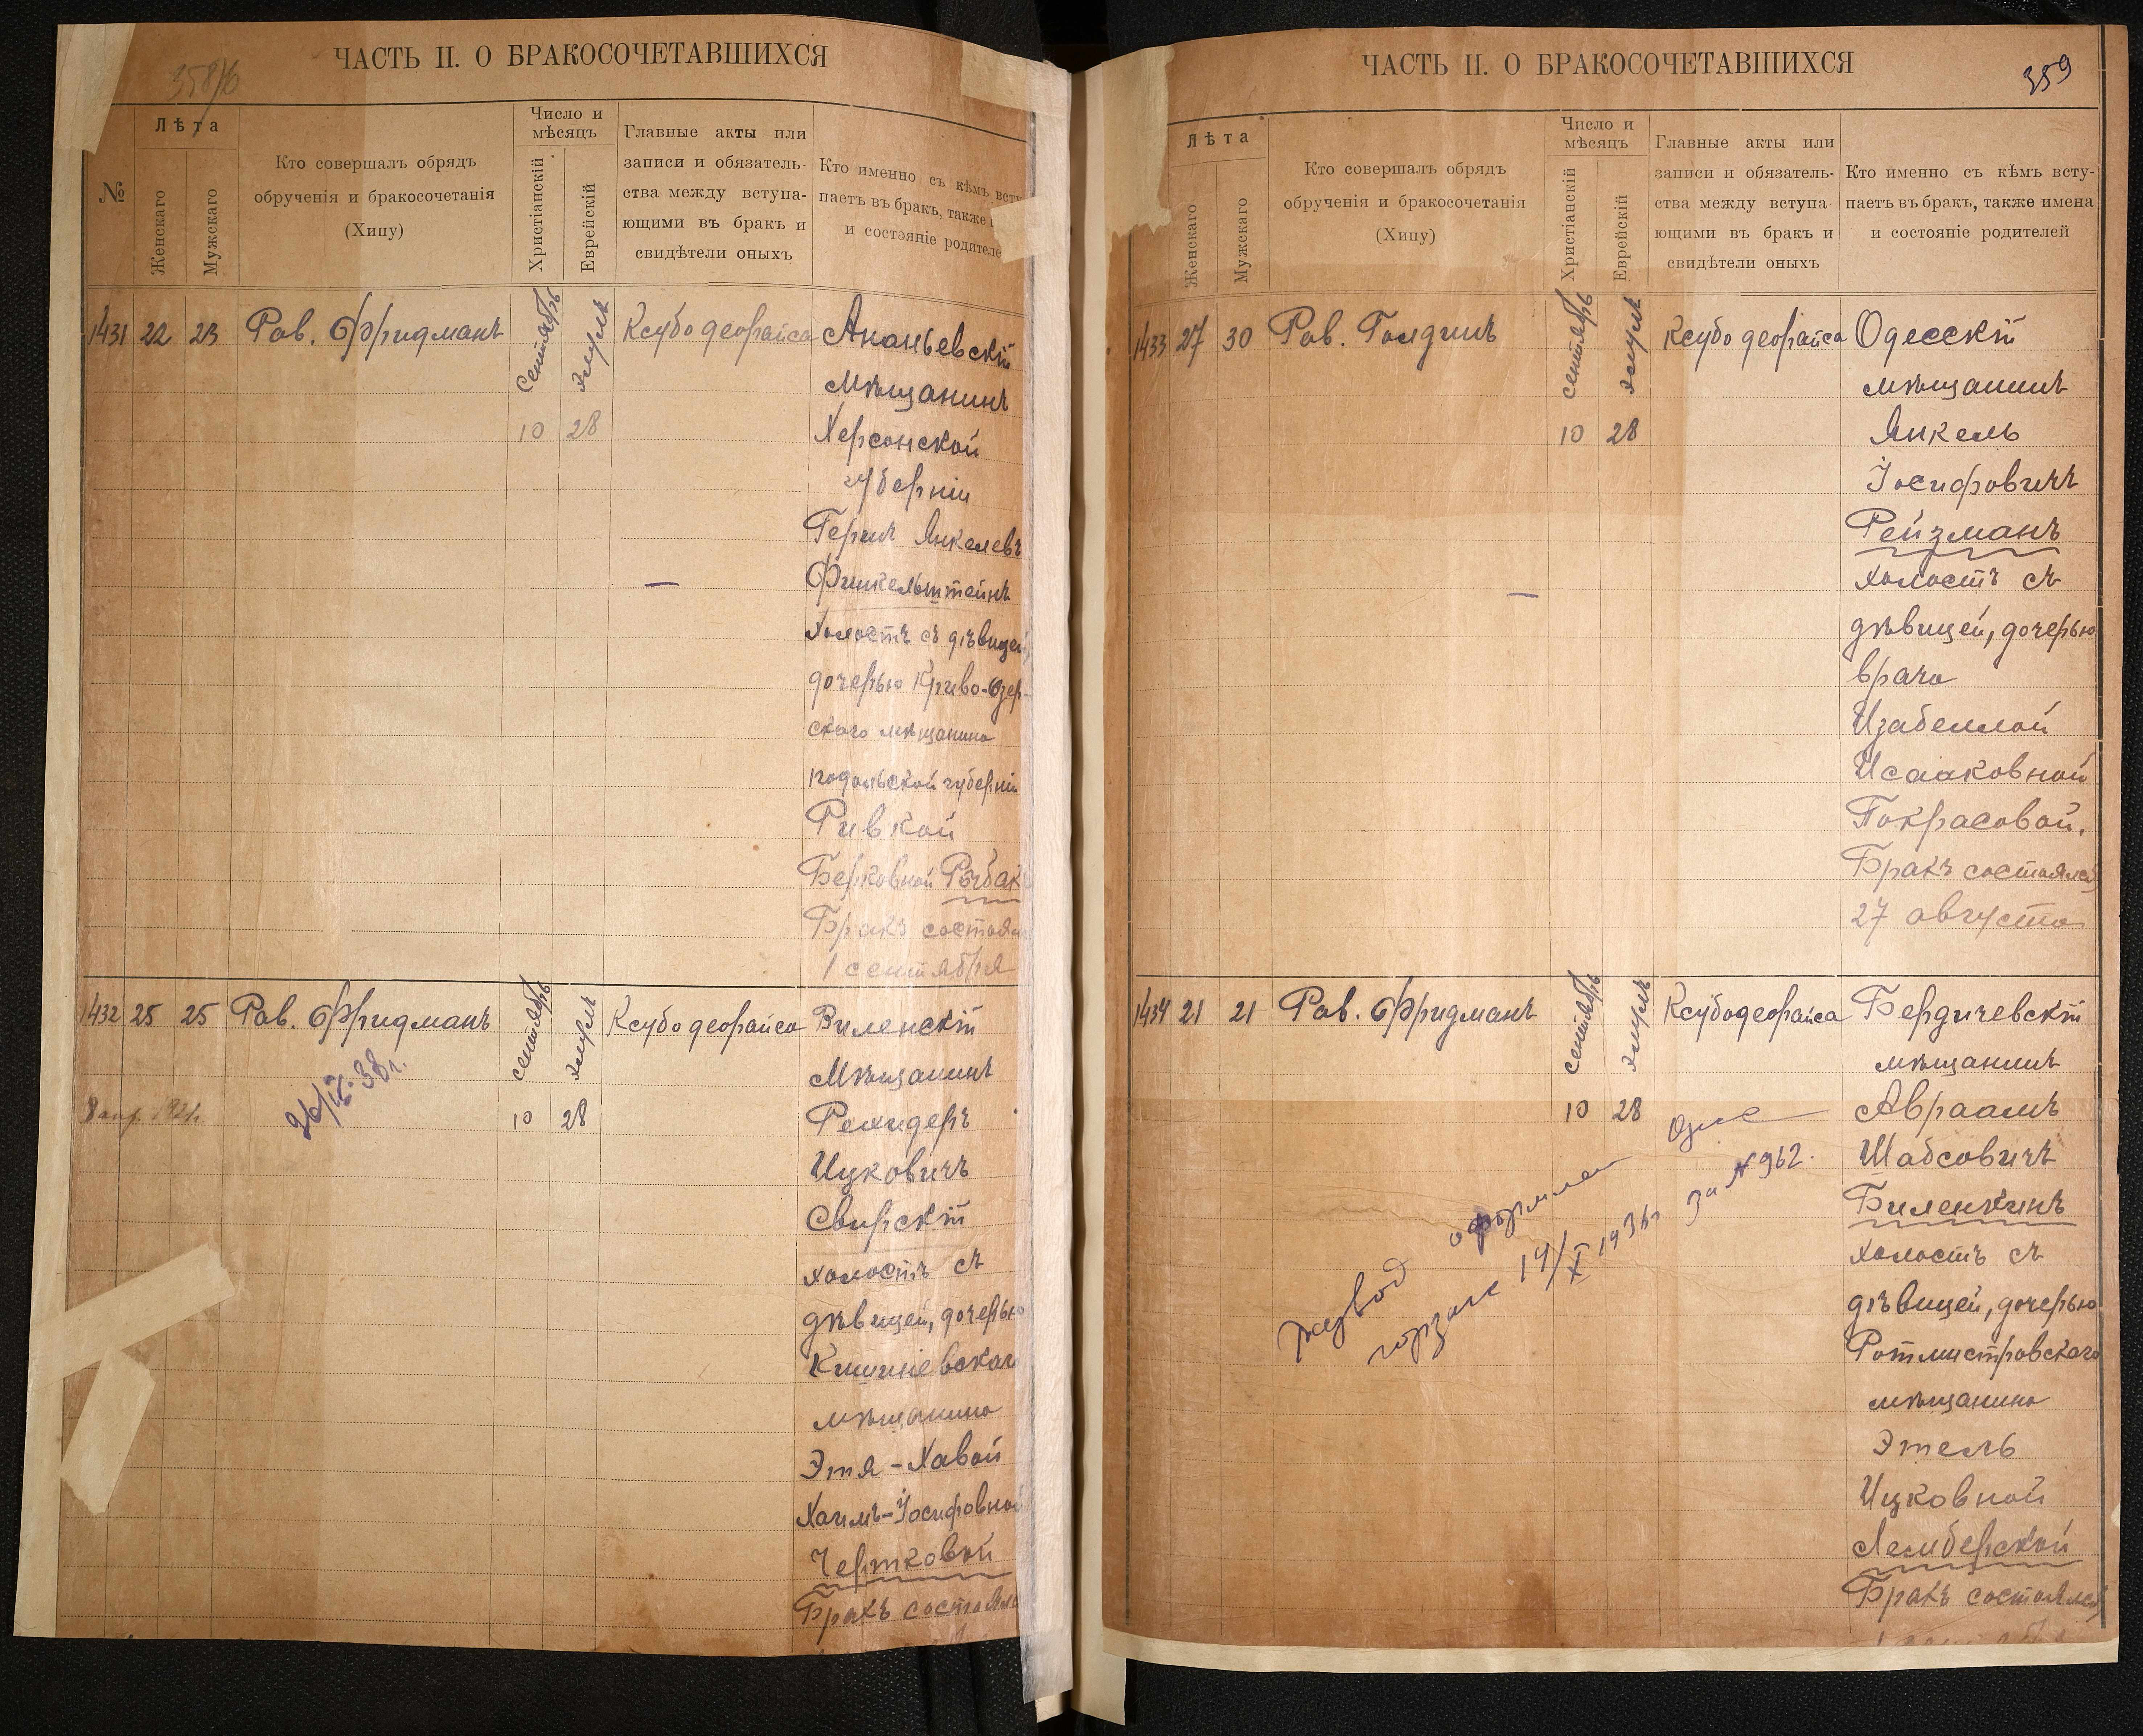 358/б
ЧАСТЬ II. О БРАКОСОЧЕТАВШИХСЯ
№
Лѣта
Женскаго
Мужскаго
Кто совершалъ обрядъ
обрученія и бракосочетанія
(Хипу)
Число и
мѣсяцъ
Христіанскій
Еврейскій
Главные акты или
записи и обязатель-
ства между вступа-
ющими въ бракъ и
свидѣтели оныхъ
Кто именно съ кѣмъ всту
паетъ въ бракъ, также
и состояніе родителе
1431 22 23 Рав. Фридманъ сентябрь элулъ Ксубо деорайса Ананьевскій
мѣщанинъ
10 28 Херсонской
губерніи
Гершъ Янкелевъ
Финкельштейнъ
холостъ съ дѣвицей,
дочерью Криво-Озер-
скаго мѣщанина
подольской губерніи
Ривкой
Берковной Рыбакъ
Бракъ состоялс
1 сентября
1432 25 25 Рав. Фридманъ сентябрь элулъ Ксубо деорайса Виленскій
мѣщанинъ
26/IV-38 г.
10 28
Ицковичъ
Свирскій
холостъ съ
дѣвицей, дочерью
Кишиневскаго
мѣщанина
Этя-Хавой
Хаимъ-Іосифовной
Чертковой
Бракъ состоялс
ЧАСТЬ II. О БРАКОСОЧЕТАВШИХСЯ
359
Лѣта
Женскаго
Мужскаго
Кто совершалъ обрядъ
обрученія и бракосочетанія
(Хипу)
Число и
мѣсяцъ
Христіанскій
Еврейскій
Главные акты или
записи и обязатель-
ства между вступа-
ющими въ бракъ и
свидѣтели оныхъ
Кто именно съ кѣмъ всту-
паетъ въ бракъ, также имена
и состояніе родителей
1433 27 30 Рав. Голдинъ сентябрь элулъ Ксубо деорайса Одесскій
мѣщанинъ
10 28 Янкель
Іосифовичъ
Рейзманъ
холостъ съ
дѣвицей, дочерью
врача
Изабеллой
Исааковной
Покрасовой.
Бракъ состоялся
27 августа
1434 21 21 Рав. Фридманъ сентябрь элулъ Ксубо деорайса Бердичевскій
мѣщанинъ
10 28 Авраамъ
Шабсовичъ
Биленкинъ
холостъ съ
дѣвицей, дочерью
Ротмистровскаго
мѣщанина
Этель
Ицковной
Лемберской
Бракъ состоялся
Развод оформлен Одес
горзагс 14/X 1936г за №962.